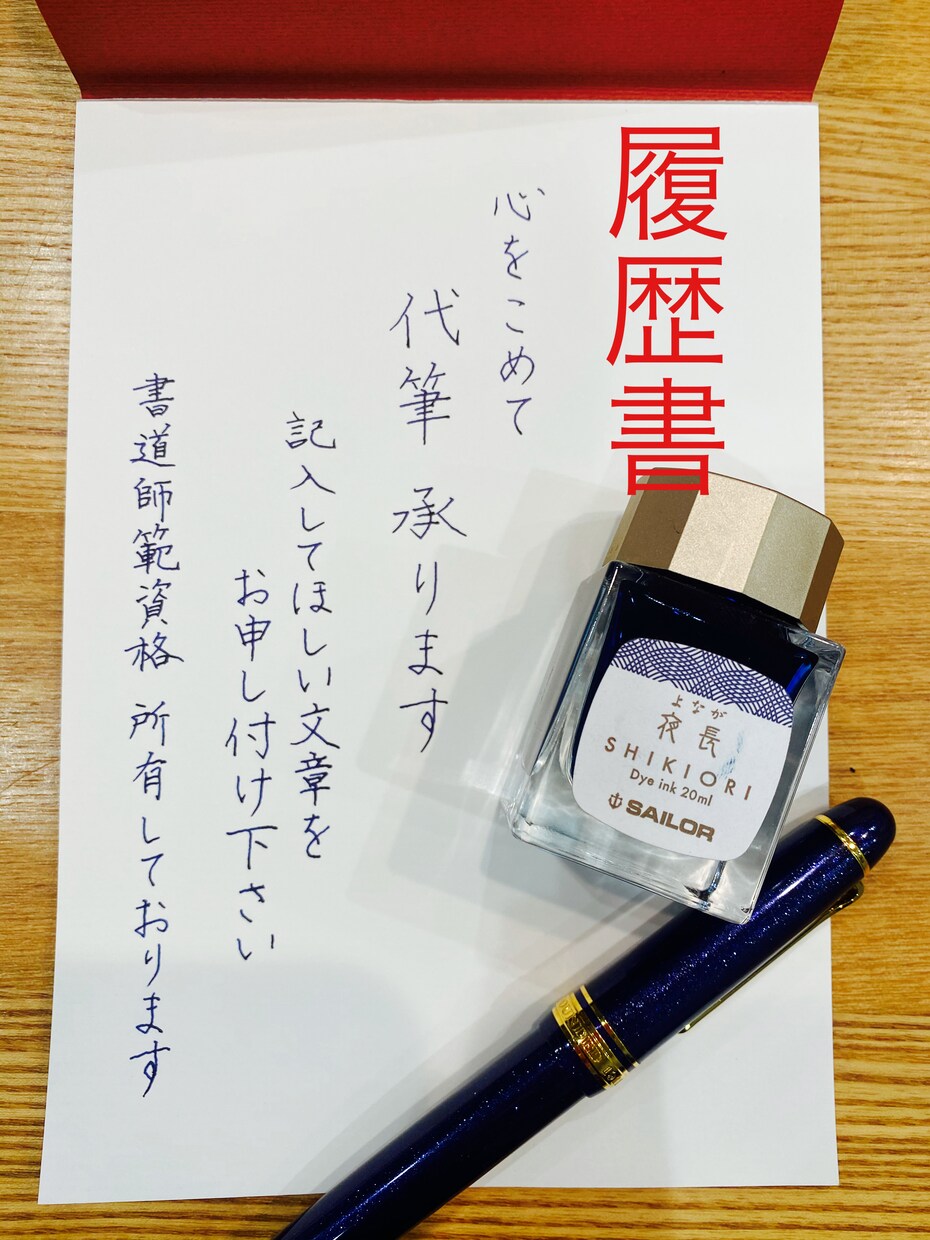 履歴書
心をこめて
代筆 承ります
記入してほしい文章を
お申し付け下さい
書道師範資格 所有しております
よなが
夜長
SHIKIORI
Dye ink 20ml
SAILOR